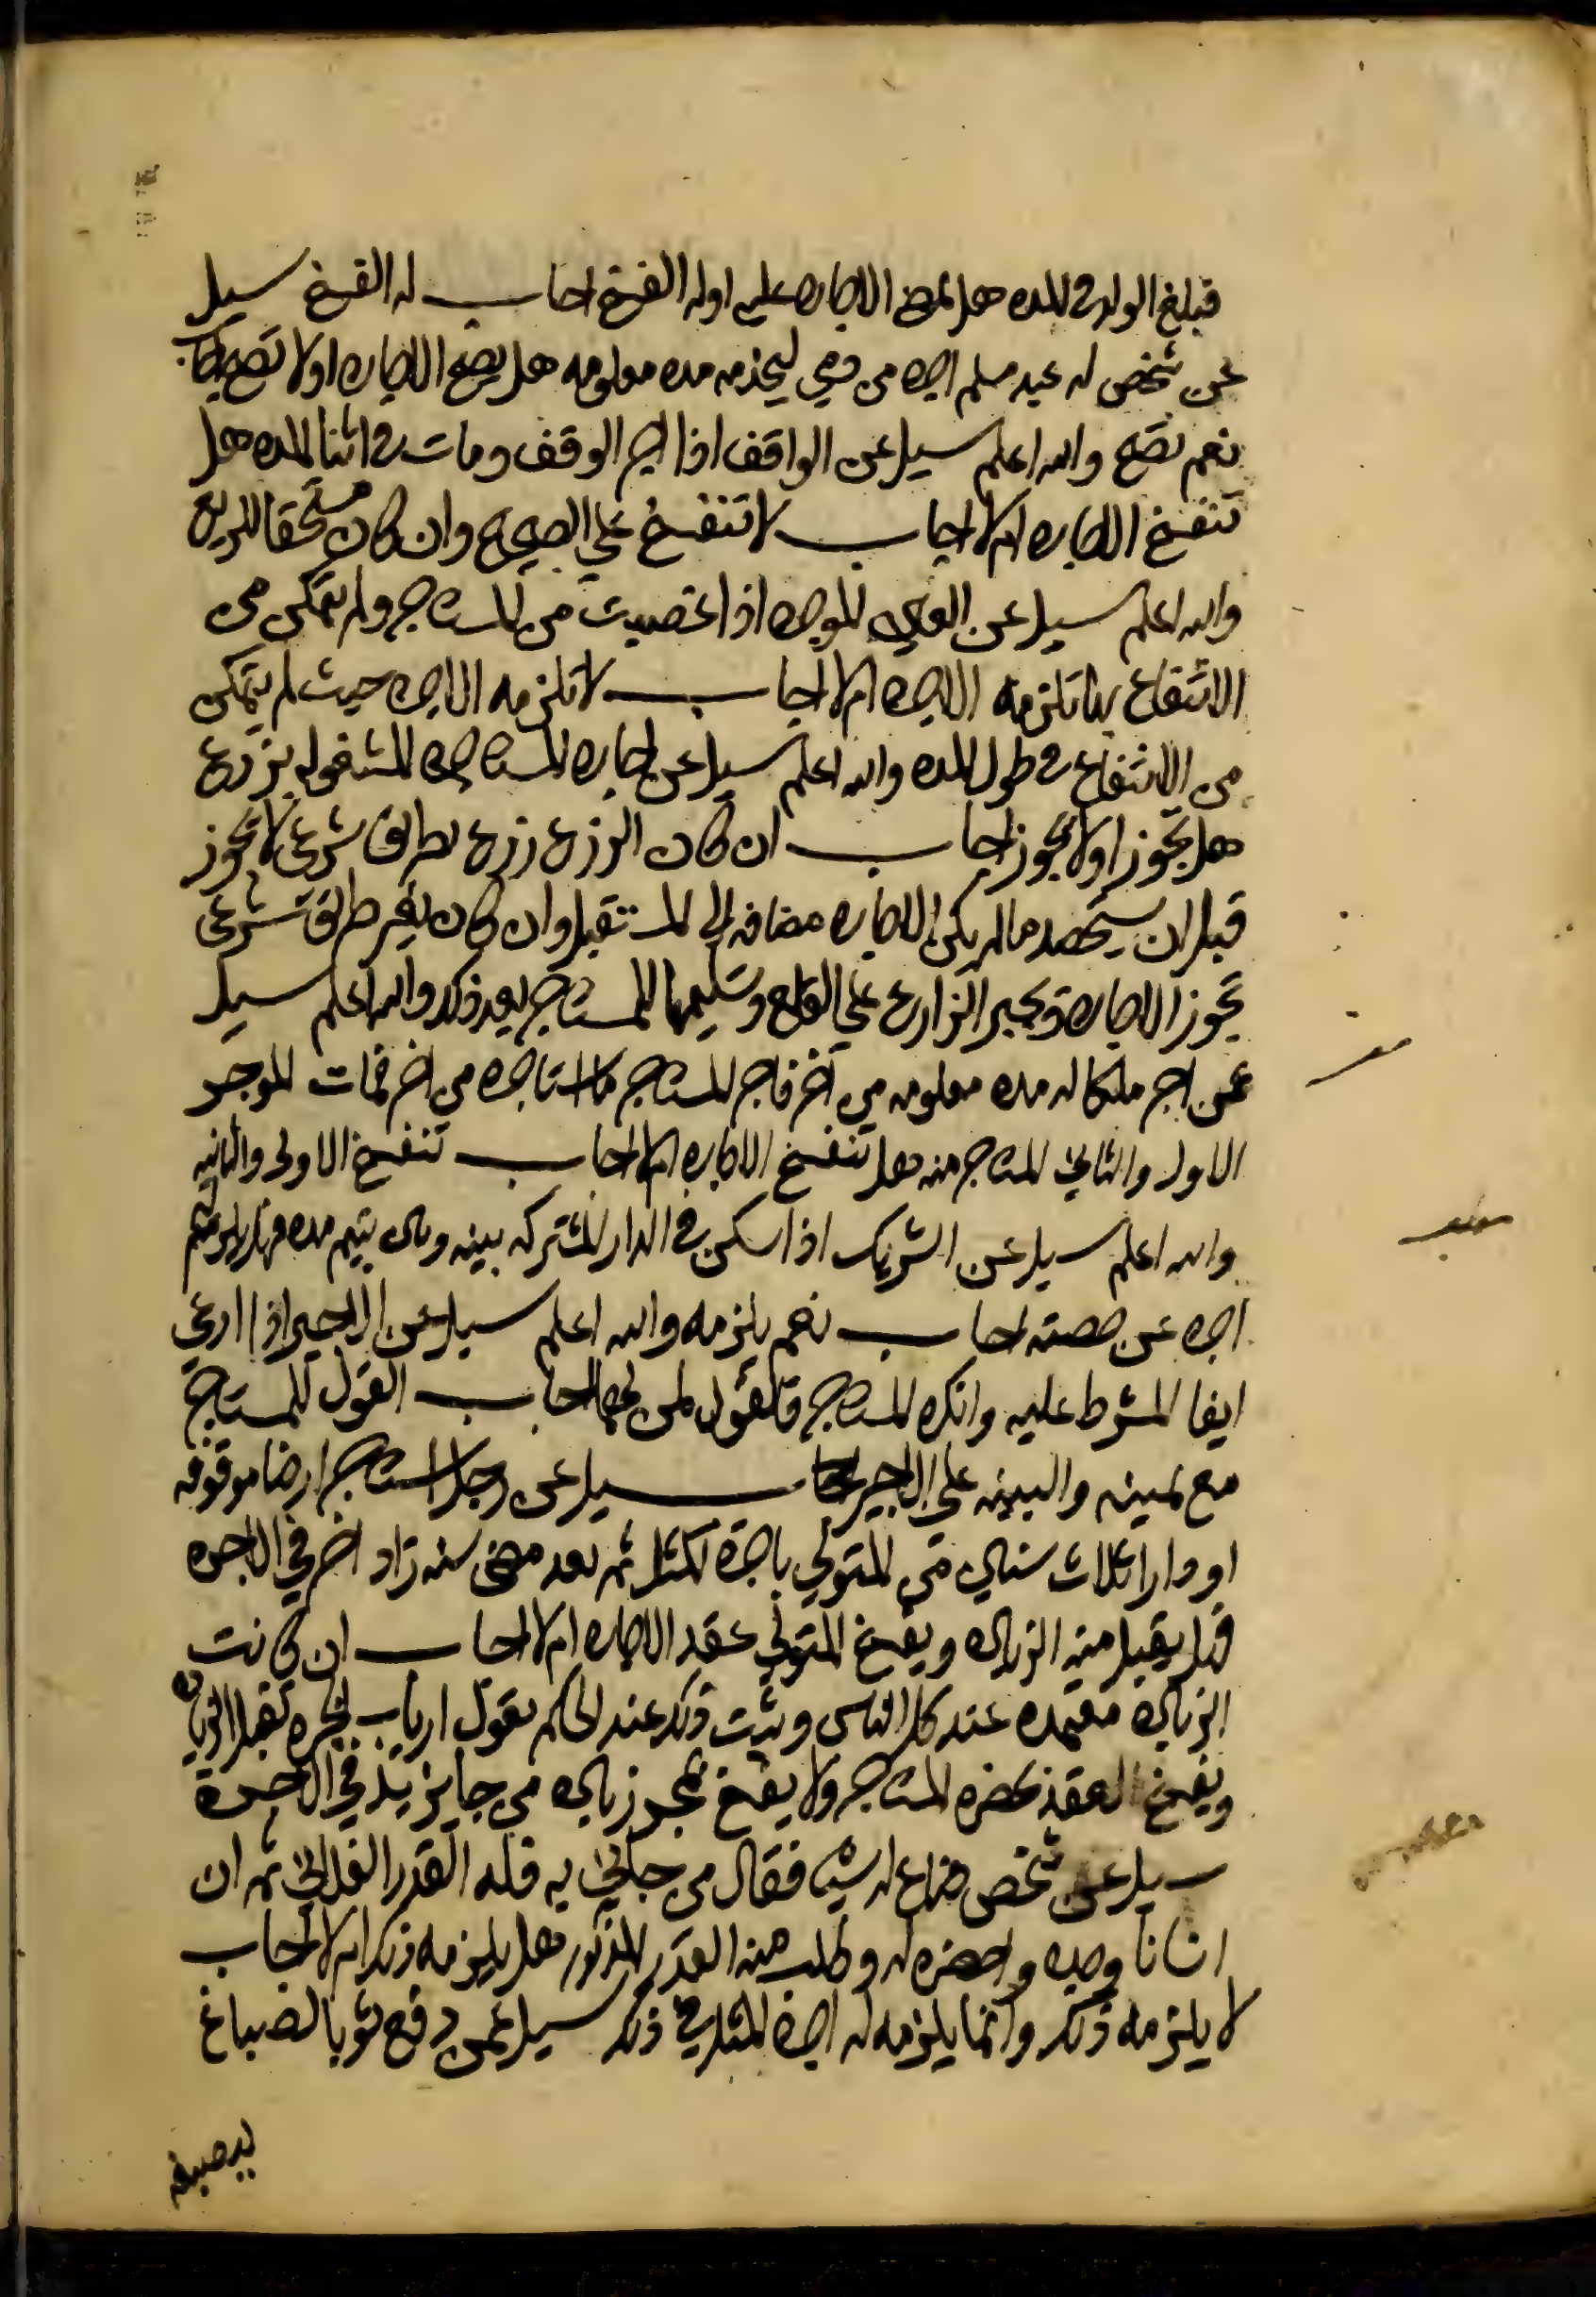 فبلغ الولد في المده هل تمضي الاجاره عليه او له الفسخ اجاب له الفسخ سيل
عن شخص له عبد مسلم اجره من ذمي ليخدمه مده معلومه هل يصح الاجاره او لا تصح اجاب
نعم تصح والله اعلم سيل عن الواقف اذا اجر الوقف ومات في اثنا المده هل
تنفسخ الاجاره ام لا اجاب لا تنفسخ علي الصحيح وان كان مستحقا للريع
والله اعلم سيل عن العين الموجره اذا غصبت من المستاجر ولم يتمكن من
الانتفاع بها تلزمه الاجره ام لا اجاب لا تلزمه الاجره حيث لم يتمكن
من الانتفاع في طول المده والله اعلم سيل عن اجاره المستاجره المشغوله بزرع
هل يجوز او لا يجوز اجاب ان كان الزرع زرع بطريق شرعي لا تجوز
قبل ان يستحصد مالم يكن الاجاره مضافه الي المستقبل وان كان بغير طريق شرعي
تجوز الاجاره ويجبر الزارع علي القلع وتسليمها للمستاجر بعد ذلك والله اعلم سيل
عمن اجر ملكا له مده معلومه من اخر فاجر المستاجر ما استاجره من اخر فمات الموجر
الاول والثاني المستاجر منه هل تنفسخ الاجاره ام لا اجاب تنفسخ الاولي والثانيه
والله اعلم سيل عن الشريك اذا سكن في الدار المشتركه بينه وبين يتيم مده فهل يلزمه لليتيم
اجره عن حصته اجاب نعم يلزمه والله اعلم سيل عن الاجير اذا ادعي
ايفا المشرط عليه وانكره المستاجر فالقول لمن منهما اجاب القول للمستاجر
مع يمينه والبينه علي الاجير سيل عن رجل استاجر ارضا موقوفه
او دارا ثلاث سنين من المتولي باجرة المثل ثم بعد مضي سنه زاد اخر في الاجره
فهل يقبل منه الزياده ويفسخ المتولي عقد الاجاره ام لا اجاب ان كانت
الزياده معتمده عند كل الناس ويثبت ذلك عند الحاكم بقول ارباب الخبره تقبل الزياده
ويفسخ العقد بحضره المستاجر ولا يفسخ بمجرد زياده من جا يزيد في الاجرة
سيل عن شخص ضاع له شيا فقال من جاني به فله القدر الفلاني ثم ان
انسانا وجده واحضره له وطلب منه القدر المذكور فهل يلزمه ذلك ام لا اجاب
لا يلزمه ذلك وانما يلزمه له اجرة المثل في ذلك سيل عمن دفع ثوبا لصباغ
ليصبغه